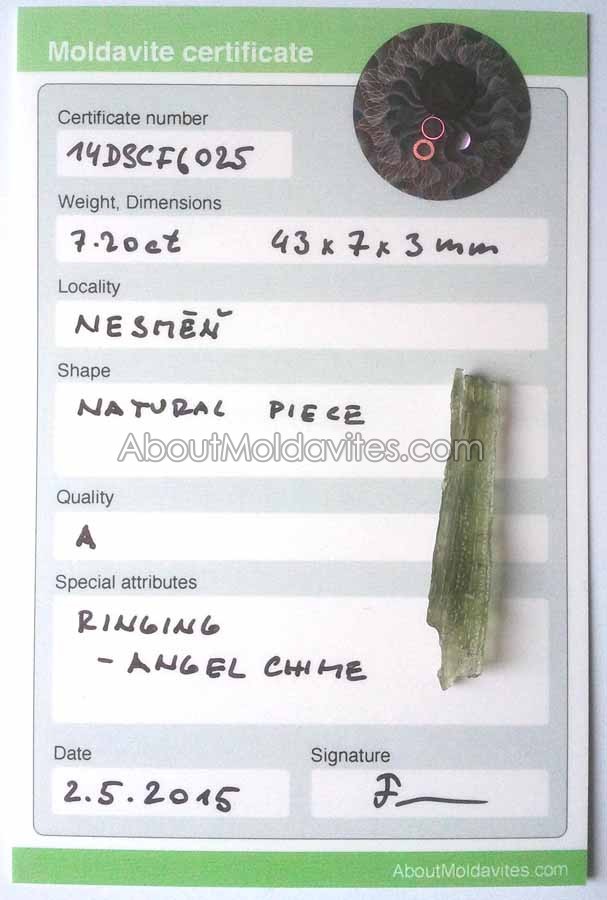 Moldavite certificate
Certificate number
14DSCF6025
Weight, Dimensions
7.20ct 43 x 7 x 3 mm
Locality
NESMĚŇ
Shape
NATURAL PIECE
AboutMoldavites.com
Quality
A
Special attributes
RINGING
- ANGEL CHIME
Date Signature
2.5.2015
AboutMoldavites.com